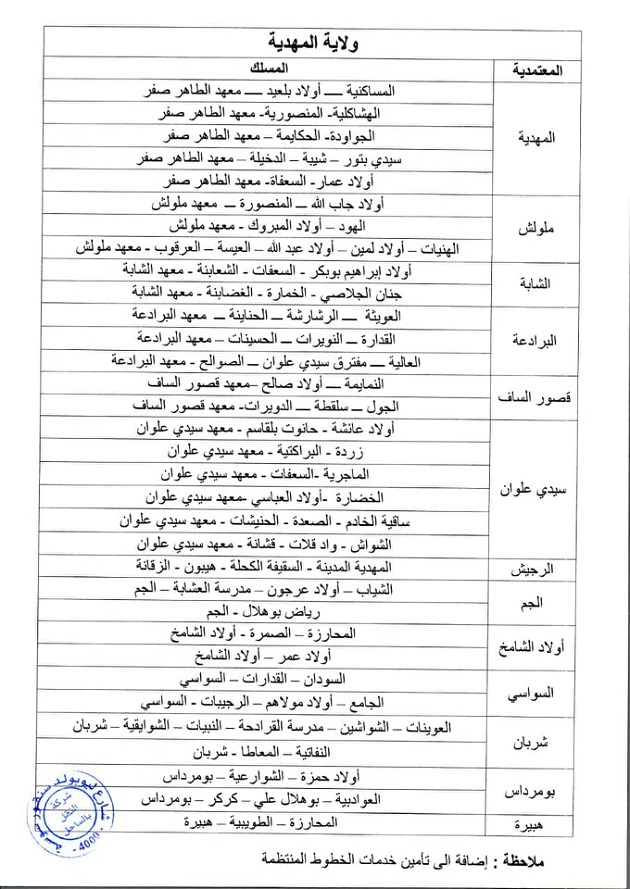 ولاية المهدية
المعتمدية المسلك
المهدية
المساكنية ـــ أولاد بلعيد ـــ معهد الطاهر صفر
الهشاكلية- المنصورية- معهد الطاهر صفر
الجواودة- الحكايمة – معهد الطاهر صفر
سيدي بتور – شيبة – الدخيلة – معهد الطاهر صفر
أولاد عمار- السعفاة- معهد الطاهر صفر
ملولش
أولاد جاب الله ـــ المنصورة ـــ معهد ملولش
الهود – أولاد المبروك - معهد ملولش
الهنيات – أولاد لمين – أولاد عبد الله – العيسة – العرقوب - معهد ملولش
الشابة
أولاد إبراهيم بوبكر - السعفات - الشعابنة - معهد الشابة
جنان الجلاصي - الخمارة - الغضابنة - معهد الشابة
البرادعة
العويثة ـــ الرشارشة ـــ الحناينة ـــ معهد البرادعة
القدارة ـــ النويرات – الحسينات – معهد البرادعة
العالية ـــ مفترق سيدي علوان ـــ الصوالح - معهد البرادعة
قصور الساف
النمايمة ـــ أولاد صالح –معهد قصور الساف
الجول ـــ سلقطة ـــ الدويرات- معهد قصور الساف
سيدي علوان
أولاد عائشة - حانوت بلقاسم - معهد سيدي علوان
زردة - البراكتية - معهد سيدي علوان
الماجرية -السعفات - معهد سيدي علوان
الخضارة -أولاد العباسي -معهد سيدي علوان
ساقية الخادم - الصعدة - الحنيشات - معهد سيدي علوان
الشواش - واد قلات - قشانة - معهد سيدي علوان
الرجيش
المهدية المدينة - السقيفة الكحلة - هيبون - الزقانة
الجم
الشياب – أولاد عرجون – مدرسة العشابة – الجم
رياض بوهلال - الجم
أولاد الشامخ
المحارزة – الصمرة - أولاد الشامخ
أولاد عمر – أولاد الشامخ
السواسي
السودان – القدارات – السواسي
الجامع – أولاد مولاهم – الرجيبات - السواسي
شربان
العوينات – الشواشين – مدرسة القرادحة – النبيات – الشوايقية – شربان
النفاتية – المعاطا - شربان
بومرداس
أولاد حمزة – الشوارعية – بومرداس
العوادبية – بوهلال علي – كركر – بومرداس
هبيرة
المحارزة – الطويبية – هبيرة
شارع ليوبولد سنغور سوسة - 4000
شركة
النقل
بالساحل
ملاحظة : إضافة الى تأمين خدمات الخطوط المنتظمة